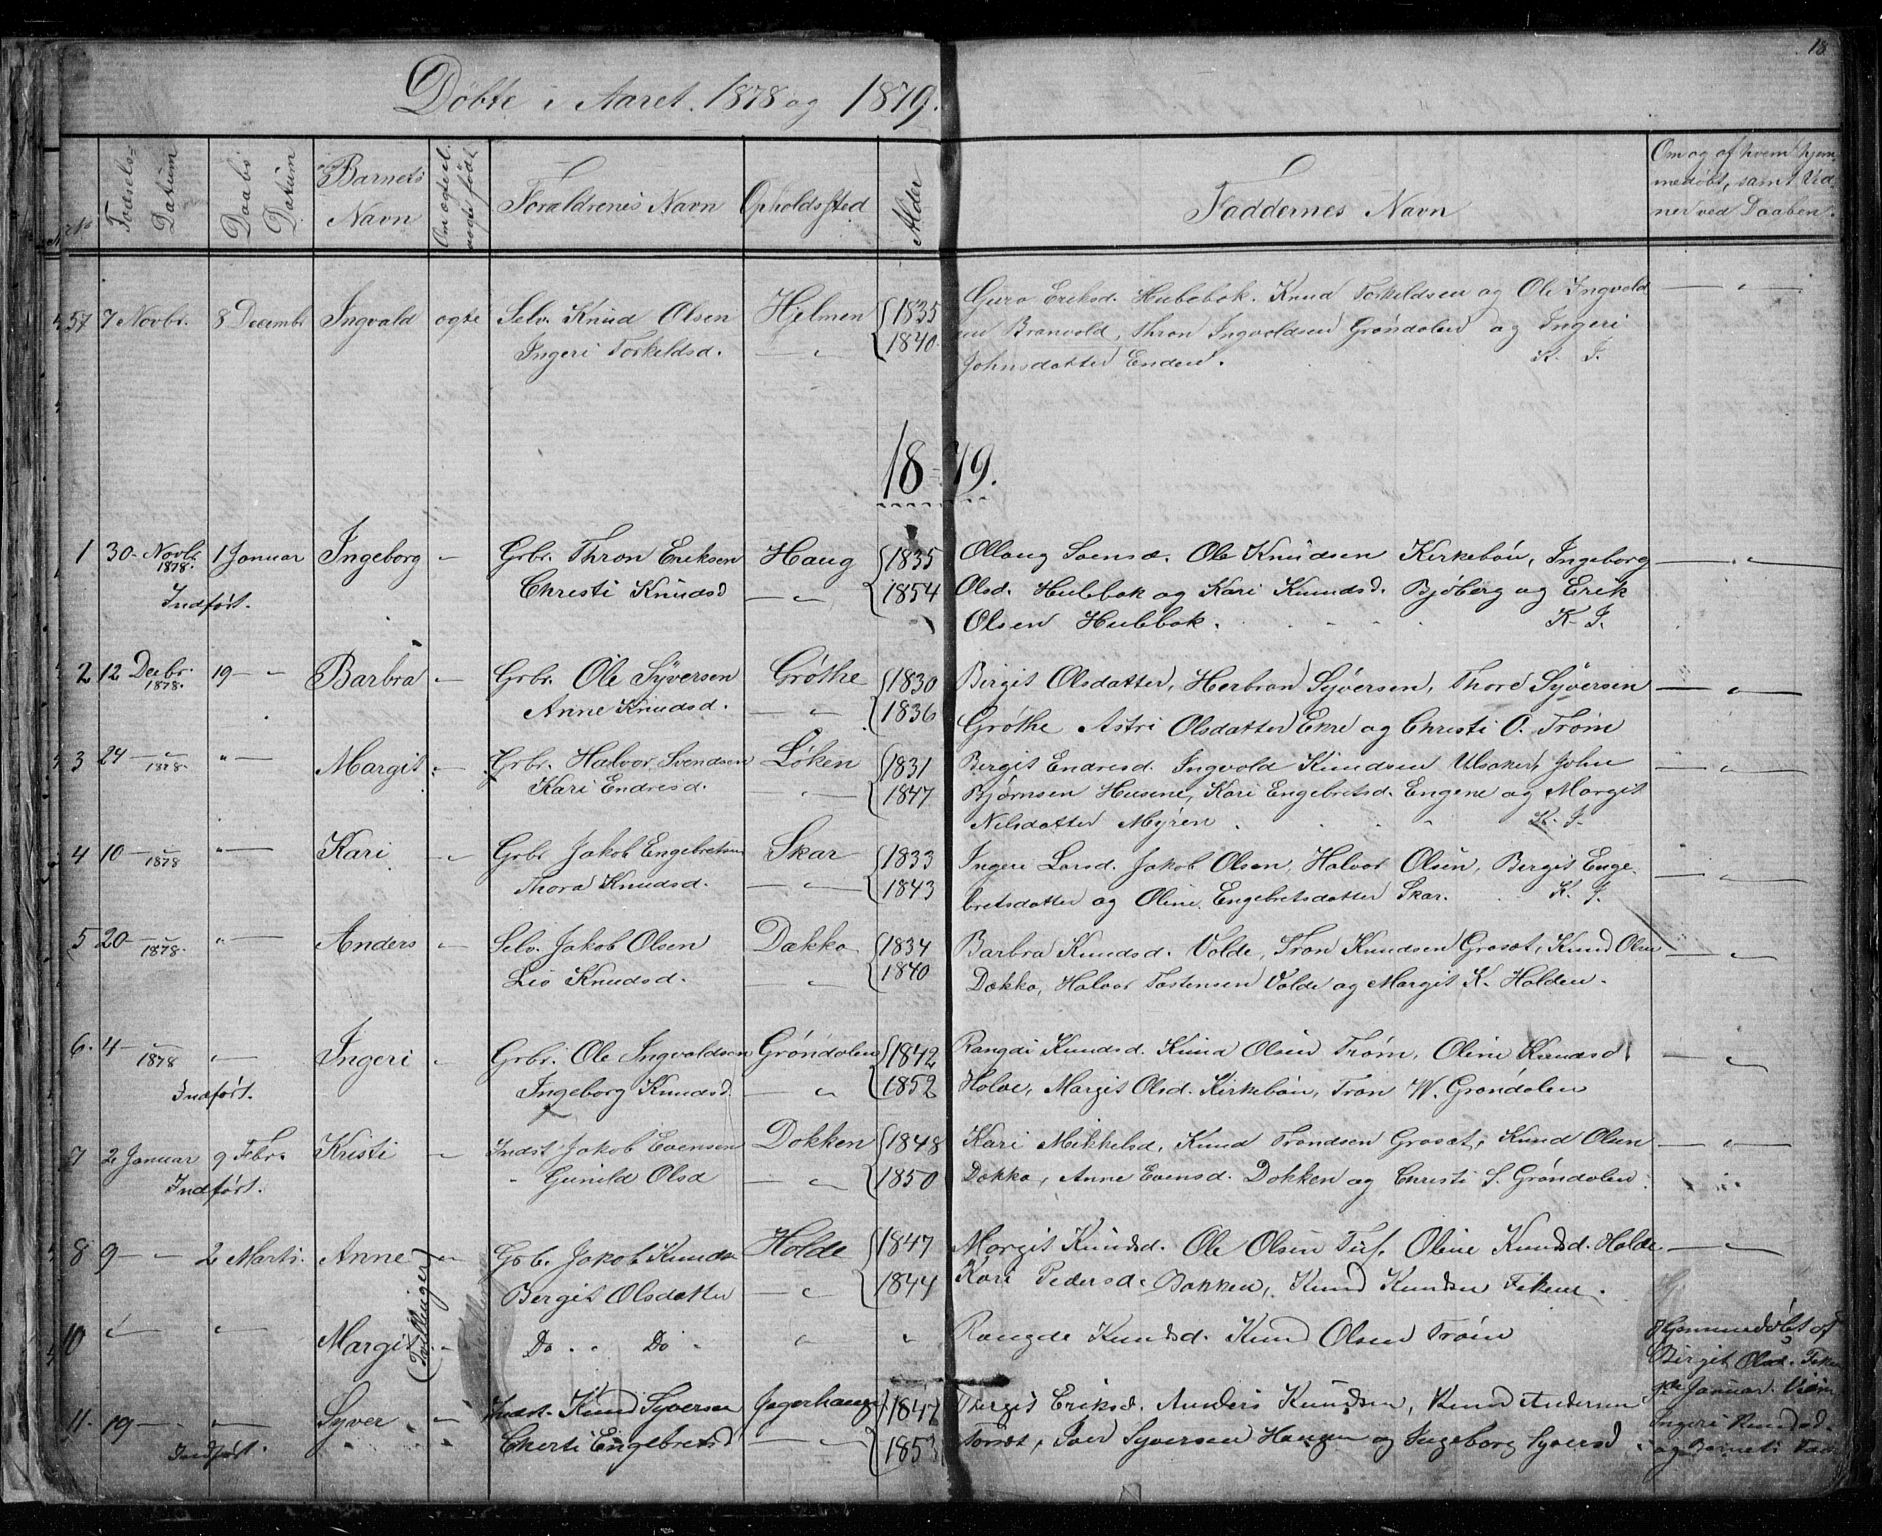 18
Døbte i Aaret 1878 og 1879.
No
Fødsels-Datum
Daabs Datum
Barnets Navn
Om ægte el. uægte født
Forældrenes Navn
Opholdssted
Alder
Faddernes Navn
Om og af hvem hjem-
medøbt, samt Vid-
ner ved Daaben.
57 7 Novbr. 8 Decembr Ingvald ægte Selv. Knud Olsen Helmen 1835 Guro Eriksd. Hulebak. Knud Torkeldsen og Ole Ingvald
Ingeri Torkeldsd. — " 1840 Branvold, Thron Ingvoldsen Grøndolen og Ingeri
Johnsdatter Enden. K. J.
1879.
1 30 Novbr. 1878. 1 Januar Ingeborg — Grbr. Thron Eriksen Haug 1835 Ollaug Svensd. Ole Knudsen Kirkebøn, Ingeborg — " —
Indført. Christi Knudsd — " — 1854 Olsd. Hulebak og Kari Knudsd. Bjøberg og Erik
Olsen Hulebak. K. J.
2 12 Decbr. 1878. 19 — " Barbra — Grbr. Ole Syversen Grøthe 1830 Birgit Olsdatter, Herbran Syversen, Thore Syversen — " —
Anne Knudsd. — " 1836 Grøthe Astri Olsdatter Ekre og Christi O. Trøim
3 24 — " — 1878. " — Margit — Grbr. Halvor Svendsen Løken 1831 Birgit Endresd. Ingvold Knudsen Ulsaker, John — " —
Kari Endresd. — " — 1847 Bjørnsen Husene, Kari Engebretsd. Engene og Margit
Nilsdatter Myren. K. J.
4 10 — " — 1878 " — Kari — " Grbr Jakob Engebretsen Skar 1833 Ingeri Larsd. Jakob Olsen, Halvor Olsen, Birgit Enge-
Thora Knudsd. — " — 1843 bretsdatter og Oline Engebretsdatter Skar. K. J. — " —
5 20 — " — 1878. " — Anders — " Selv. Jakob Olsen Dækko 1834 Barbra Knudsd. Volde, Tron Knudsen Grøsæt, Knud Olsen — " —
Liv Knudsd. — " — 1840 Dækko, Halvor Tostensen Volde og Margit K. Halden.
6. 4 — " — 1878 " — Ingeri — Grbr. Ole Ingvoldsen Grøndolen 1842 Rangdi Knudsd. Knud Olsen Trøm, Oline Knudsd. — " —
Indført. Ingeborg Knudsd. — " — 1852 Holde, Margit Olsd. Kirkebøn, Tron W. Grøndolen
7 2 Januar 9 Febr. Kristi — " Indst Jakob Evensen Dokken 1848 Kari Mikkelsd, Knud Trondsen Grøsæt, Knud Olsen — " —
Indført. Gunild Olsd — " — 1850 Dækko, Anne Evensd. Dokken og Christi S. Grøndolen.
8 9 — " 2 Marts. Anne — " Grb. Jakob Knudsn Holde 1847 Margit Knudsd. Ole Olsen Tuf, Oline Knudsd. Holde — " —
(Tvillinger) Bergit Olsdatter — " — 1844 Kari Pedersd. Bakken, Knud Knudsen Fekene.
10 " — " — Margit " Do " Do " " " Rangde Knudsd. Knud Olsen Trøim Hjemmedøbt af
Birgit Olsd.
11. 19 — " " — Syver " — Indst. Knud Syversen Jegerhaugen 1847 Thergit Eriksd. Anders Knudsen, Knud Andersen Januar.
Indført. Engebretsd — " — 1853 Iver Syversen Haugen og Ingeborg Syversd. Ingeri Knudsd.
og Barnets